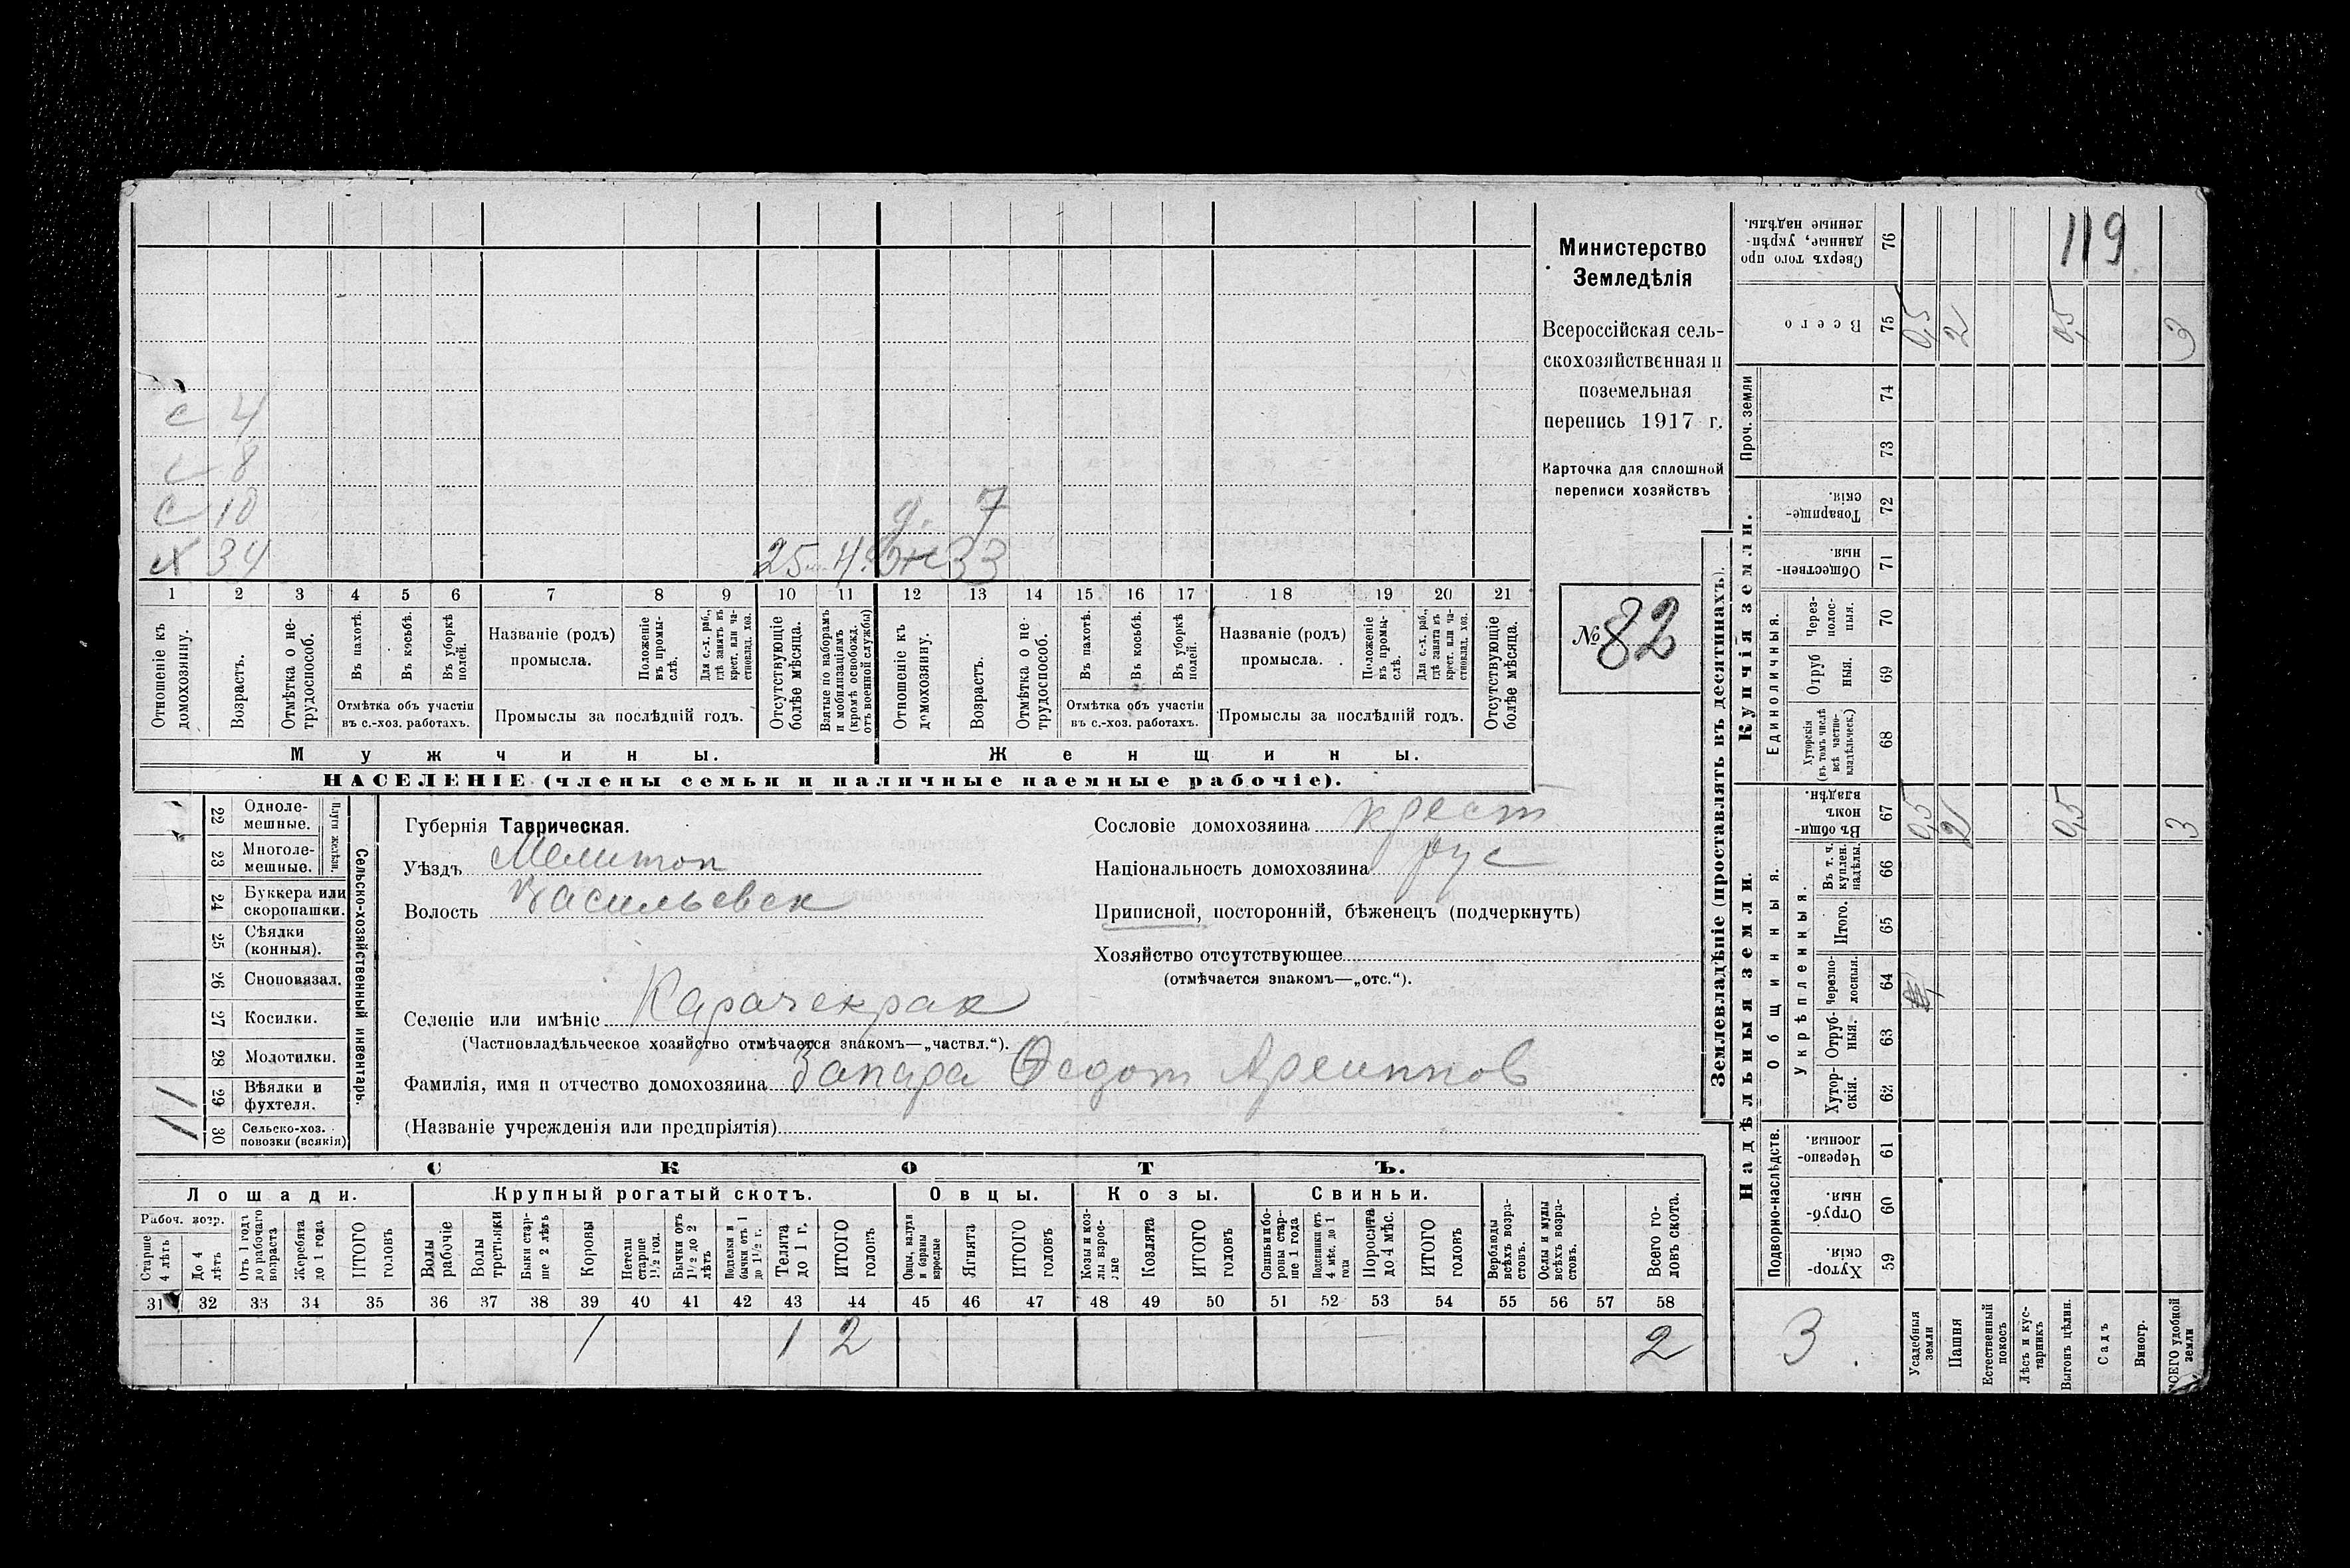 119
с 4
с 8
с 10 д. 7
х 34 25 м. 4 ж 33
1 2 3 4 5 6 7 8 9 10 11 12 13 14 15 16 17 18 19 20 21
Отношеніе къ домохозяину.
Возрастъ.
Отмѣтка о нетрудоспособ.
Въ пахотѣ.
Въ косьбѣ.
Въ уборкѣ полей.
Отмѣтка объ участіи въ с.-хоз. работахъ.
Названіе (родъ) промысла.
Положеніе въ промыслѣ.
Для с.-х. раб., гдѣ занятъ въ крест. или частновлад. хоз.
Промыслы за послѣдній годъ.
Отсутствующіе болѣе мѣсяца.
Взятые по наборамъ и мобилизаціямъ (кромѣ освобожд. отъ военной службы)
Отношеніе къ домохозяину.
Возрастъ.
Отмѣтка о нетрудоспособ.
Въ пахотѣ.
Въ косьбѣ.
Въ уборкѣ полей.
Отмѣтка объ участіи въ с.-хоз. работахъ.
Названіе (родъ) промысла.
Положеніе въ промыслѣ.
Для с.-х. раб., гдѣ занята въ крест. или частновлад. хоз.
Промыслы за послѣдній годъ.
Отсутствующіе болѣе мѣсяца.
Мужчины. Женщины.
НАСЕЛЕНІЕ (члены семьи и наличные наемные рабочіе).
Министерство
Земледѣлія
Всероссійская сель-
скохозяйственная и
поземельная
перепись 1917 г.
Карточка для сплошной
переписи хозяйствъ
№ 82
22 Одноле-мешные.
23 Многоле-мешные.
Плуги желѣзн.
24 Буккера или скоропашки.
25 Сѣялки (конныя).
26 Сноповязал.
27 Косилки.
28 Молотилки.
29 Вѣялки и фухтеля. 1
30 Сельско-хоз. повозки (всякія) 1
Сельско-хозяйственный инвентарь.
Губернія Таврическая.
Уѣздъ Мелитоп
Волость Васильевск
Селеніе или имѣніе Карачекрак
(Частновладѣльческое хозяйство отмѣчается знакомъ—„частвл.“).
Фамилія, имя и отчество домохозяина Запара Ѳедот Архиппов
(Названіе учрежденія или предпріятія)
Сословіе домохозяина крест
Національность домохозяина рус
Приписной, посторонній, бѣженецъ (подчеркнуть)
Хозяйство отсутствующее
(отмѣчается знакомъ—„отс.“).
СКОТЪ.
Лошади. Крупный рогатый скотъ. Овцы. Козы. Свиньи.
Рабоч. возр.
Старше 4 лѣтъ
До 4 лѣтъ
Отъ 1 года до рабочаго возраста
Жеребята до 1 года
ИТОГО головъ
Волы рабочіе
Волы третьяки
Быки старше 2 лѣтъ
Коровы
Нетели старше 1 1/2 год.
Бычки отъ 1 1/2 до 2 лѣтъ
Подтелки и бычки отъ 1 до 1 1/2 г.
Телята до 1 г.
ИТОГО головъ
Овцы, валухи и бараны взрослые
Ягнята
ИТОГО головъ
Козы и козлы взрослые
Козлята
ИТОГО головъ
Свиньи и боровы старше 1 года
Подсвинки отъ 4 мѣс. до 1 года
Поросята до 4 мѣс.
ИТОГО головъ
Верблюды всѣхъ возрастовъ.
Ослы и мулы всѣхъ возрастовъ.
Всего головъ скота.
31 32 33 34 35 36 37 38 39 40 41 42 43 44 45 46 47 48 49 50 51 52 53 54 55 56 57 58
1 1 2 2
Землевладѣніе (проставлять въ десятинахъ).
Сверхъ того проданные, укрѣпленные надѣлы. 76
Всего 75 0,5 2 0,5 3
Проч. земли 74 73
Купчія земли.
Товарищескія. 72
Общественныя. 71
Единоличныя.
Черезполосныя. 70
Отрубныя. 69
Хуторскія (въ томъ числѣ всѣ частновладѣльческ.) 68
Надѣльныя земли.
Общинныя.
Въ общинномъ владѣн. 67 0,5 2 0,5 3
Укрѣпленныя.
Въ т. ч. куплен. надѣлы. 66
Итого. 65
Черезполосныя. 64
Отрубныя. 63
Хуторскія. 62
Подворно-наслѣдств.
Черезполосныя. 61
Отрубныя. 60
Хуторскія. 59
3.
Усадебныя земли
Пашня
Естественный покосъ
Лѣсъ и кустарникъ
Выгонъ цѣлин.
Садъ
Виногр.
ВСЕГО удобной земли